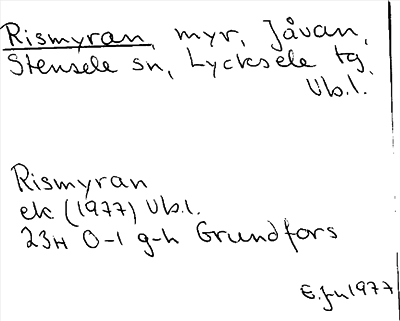 Rismyran, myr, Jåvan,
Stensele sn, Lycksele tg
Vb.l.
Rismyran
ek (1977) Vb.l.
23H 0-1 g-h Grundfors
1977